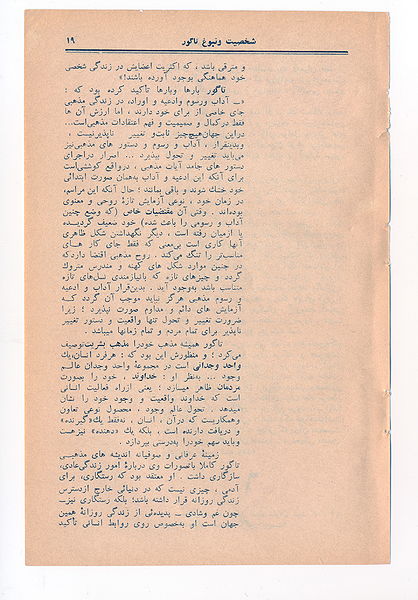 شخصیت ونبوغ تاگور
۱۹
و مترقی باشد ، که اکثریت اعضایش در زندگی شخصی
خود هماهنگی بوجود آورده باشند!»
تاگور بارها وبارها تأکید کرده بود که :
«ـ آداب ورسوم وادعیه و اوراد، در زندگی مذهبی
جای خاصی از برای خود دارند ، اما ارزش آن ها
فقط درکمال و صمیمیت و فهم اعتقادات مذهبی‌است..
دراین جهان‌هیچ‌چیز ثابت‌و تغییر ناپذیرنیست ،
وبدینقرار ، آداب و رسوم و دستور های مذهبی‌نیز
می‌باید تغییر و تحول بپذیرد ... اصرار دراجرای
دستور های جامد آیات مذهبی ، درواقع کوششی‌است
برای آنکه این ادعیه و آداب به‌همان صورت ابتدائی
خود خنك شوند و باقی بمانند ؛ حال آنکه این مراسم،
در زمان خود ، نوعی آزمایش تازۀ روحی و معنوی
بوده‌اند . وقتی آن مقتضیات خاص (که وضع چنین
آداب و رسومی را باعث شده) خود ضعیف گردیده
یا ازمیان رفته است ، دیگر نگهداشتن شکل ظاهری
آنها کاری است بی‌معنی که فقط جای کار های
مناسب‌تر را تنگ می‌کند . روح مذهبی اقتضا دارد‌که
در چنین موارد شکل های کهنه و مندرس متروك
گردد و چیزهای تازه که بانیازمندی نسل‌های تازه
متناسب باشد به‌وجود آید . بدین‌قرار آداب و ادعیه
و رسوم مذهبی هرگز نباید موجب آن گردد که
آزمایش های دائم و مداوم صورت نپذیرد ؛ زیرا
ضرورت تغییر و تحول تنها واقعیت و دستور تغییر
ناپذیر برای تمام مردم و تمام زمانها میباشد .
تاگور همیشه مذهب خودرا مذهب بشریت‌توصیف
می‌کرد ؛ و منظورش این بود که : هرفرد انسان،یك
واحد وجدانی است در مجموعۀ واحد وجدان عالم
وجود ... به‌نظر او : خداوند ، خود را بصورت
مردمان ظاهر میسازد ؛ یعنی ازراه فعالیت انسانی
است که خداوند واقعیت و وجود خود را نشان
میدهد . تحول عالم وجود ، محصول نوعی تعاون
وهمکاریست که درآن ، انسان ، نه‌فقط یك«گیرنده»
و دریافت دارنده است ، بلکه یك «دهنده» نیزهست
وباید سهم خودرا به‌درستی بپردازد .
زمینۀ عرفانی و صوفیانه اندیشه های مذهبی
تاگور کاملا باتصورات وی دربارۀ امور زندگی‌عادی،
سازگاری داشت . او معتقد بود که رستگاری، برای
آدمی ، چیزی نیست که در دنیائی خارج ازدسترس
زندگی روزانه قرار داشته باشد؛ بلکه رستگاری نیز-
چون غم وشادی ـ پدیده‌ئی از زندگی روزانۀ همین
جهان است او به‌خصوص روی روابط انسانی تأکید